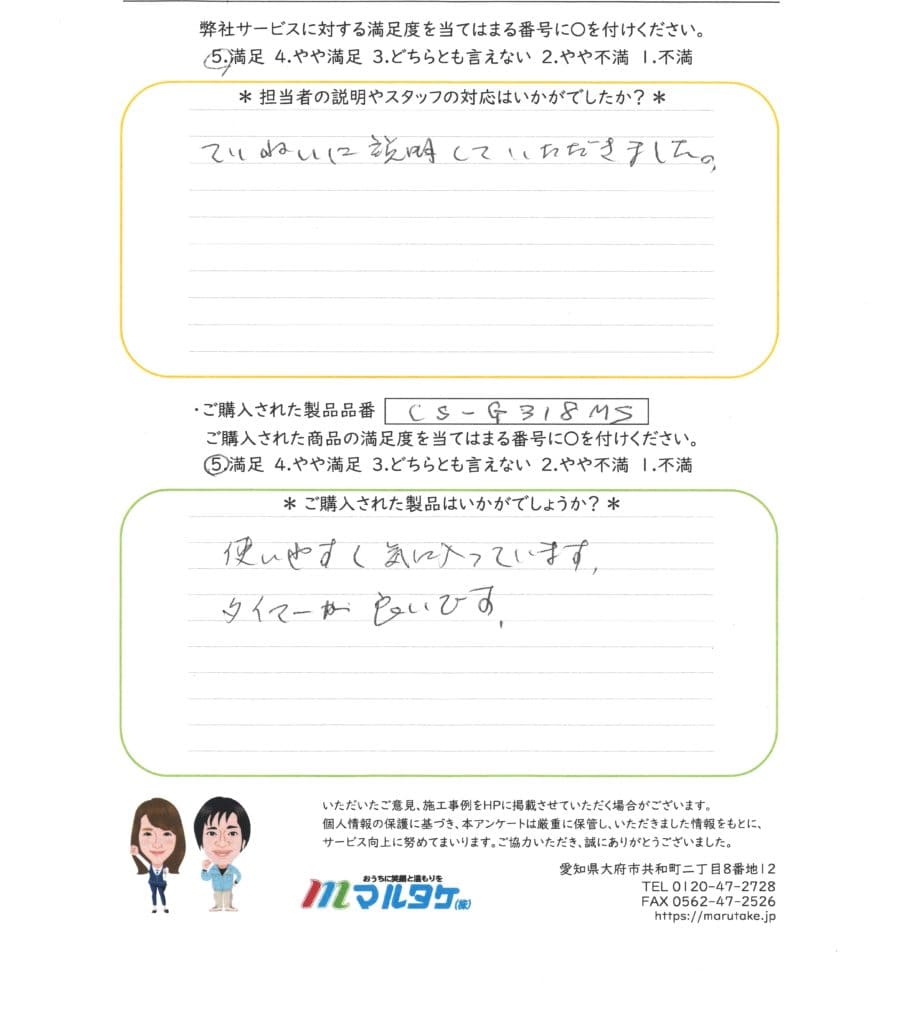 弊社サービスに対する満足度を当てはまる番号に〇を付けください。
5.満足 4.やや満足 3.どちらとも言えない 2.やや不満 1.不満
＊ 担当者の説明やスタッフの対応はいかがでしたか？＊
ていねいに説明していただきました。
・ご購入された製品品番 CS-G318MS
ご購入された商品の満足度を当てはまる番号に〇を付けください。
5.満足 4.やや満足 3.どちらとも言えない 2.やや不満 1.不満
＊ ご購入された製品はいかがでしょうか？＊
使いやすく気に入っています,
タイマーが良いです,
いただいたご意見、施工事例をHPに掲載させていただく場合がございます。
個人情報の保護に基づき、本アンケートは厳重に保管し、いただきました情報をもとに、
サービス向上に努めてまいります。ご協力いただき、誠にありがとうございました。
おうちに笑顔と温もりを
mマルタケ(株)
愛知県大府市共和町二丁目8番地12
TEL 0120-47-2728
FAX 0562-47-2526
https://marutake.jp